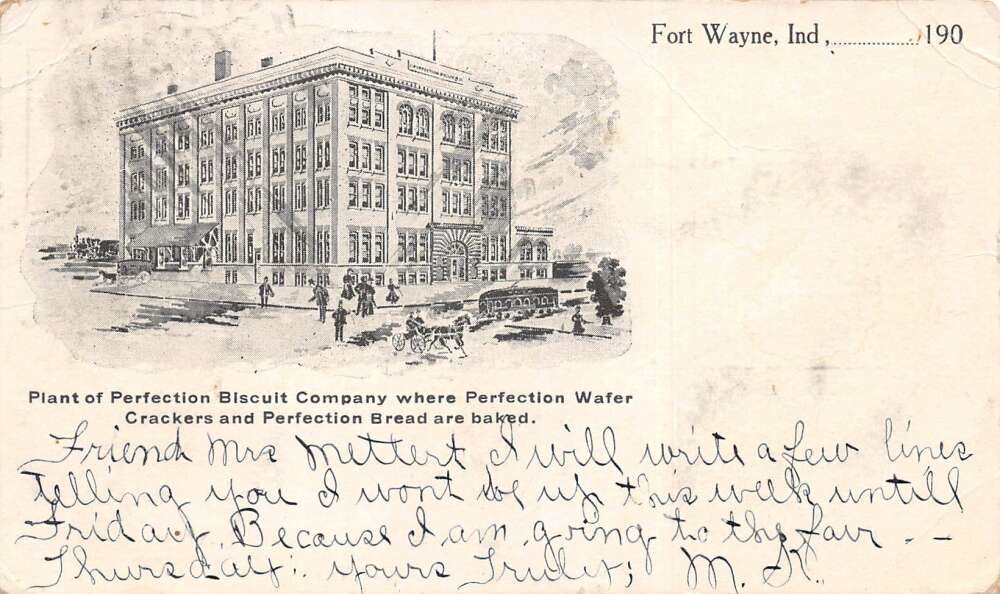 Fort Wayne, Ind, 190
Plant of Perfection Biscuit Company where Perfection Wafer
Crackers and Perfection Bread are baked.
Friend Mrs Mettert I will write a few lines
telling you I wont be up this week untill
Friday, Because I am going to the fair --
Thursday. yours Truly; M. K.